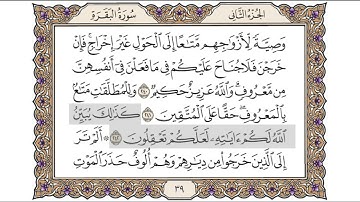 الجزء الثاني
سورة البقرة
وَصِيَّةً لِّأَزْوَٰجِهِم مَّتَٰعًا إِلَى ٱلْحَوْلِ غَيْرَ إِخْرَاجٍ ۚ فَإِنْ
خَرَجْنَ فَلَا جُنَاحَ عَلَيْكُمْ فِى مَا فَعَلْنَ فِىٓ أَنفُسِهِنَّ
مِن مَّعْرُوفٍ ۗ وَٱللَّهُ عَزِيزٌ حَكِيمٌ ٢٤٠ وَلِلْمُطَلَّقَٰتِ مَتَٰعٌۢ
بِٱلْمَعْرُوفِ ۖ حَقًّا عَلَى ٱلْمُتَّقِينَ ٢٤١ كَذَٰلِكَ يُبَيِّنُ
ٱللَّهُ لَكُمْ ءَايَٰتِهِۦ لَعَلَّكُمْ تَعْقِلُونَ ٢٤٢ ۞ أَلَمْ تَرَ
إِلَى ٱلَّذِينَ خَرَجُوا۟ مِن دِيَٰرِهِمْ وَهُمْ أُلُوفٌ حَذَرَ ٱلْمَوْتِ
٣٩